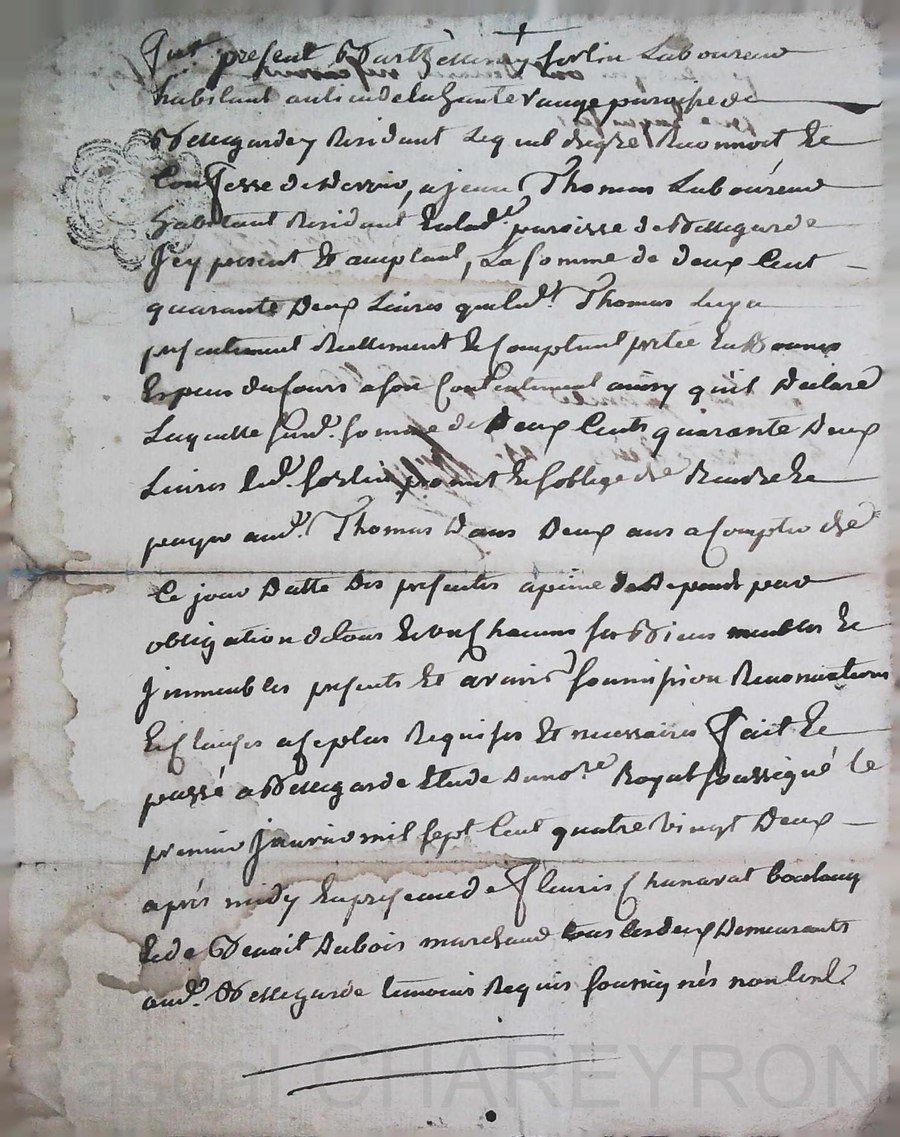 present Barthelemy fortin Laboureur
habitant au lieu de paroisse de
Bellegarde y Residant Lequel de gré Reconnoit Et
Confesse de devoir, a jean Thomas Laboureur
habitant Residant En lad.e paroisse de Bellegarde
Icy present Et acceptant, La somme de deux Cent
quarante Deux Livres que led.t Thomas Luy a
presentement Reellement Et Comptant pretée En Bonnes
Especes de Cours a son Contentement ainsy qu'il Declare
Laquelle susd.e somme de Deux Cents quarante Deux
Livres led.t fortin promet Et s'oblige de Rendre Et
payer aud.t Thomas Dans Deux ans a Compter de
Ce jour Datte Des presentes a peine de Depends par
obligation de tous Et un Chacuns ses Biens meubles Et
Immeubles presents Et avenir soumission Renonciations
Et Clauses a ce plus Requises Et necessaires Fait Et
passé a Bellegarde Etude du no.re Royal soussigné le
premier Janvier mil sept Cent quatre vingt Deux
après midy En presence de fleuris Chanavat
Et de Benoit Dubois marchand tous les deux Demeurants
aud.t Bellegarde temoins Requis soussignés non led.t
Pascal CHAREYRON